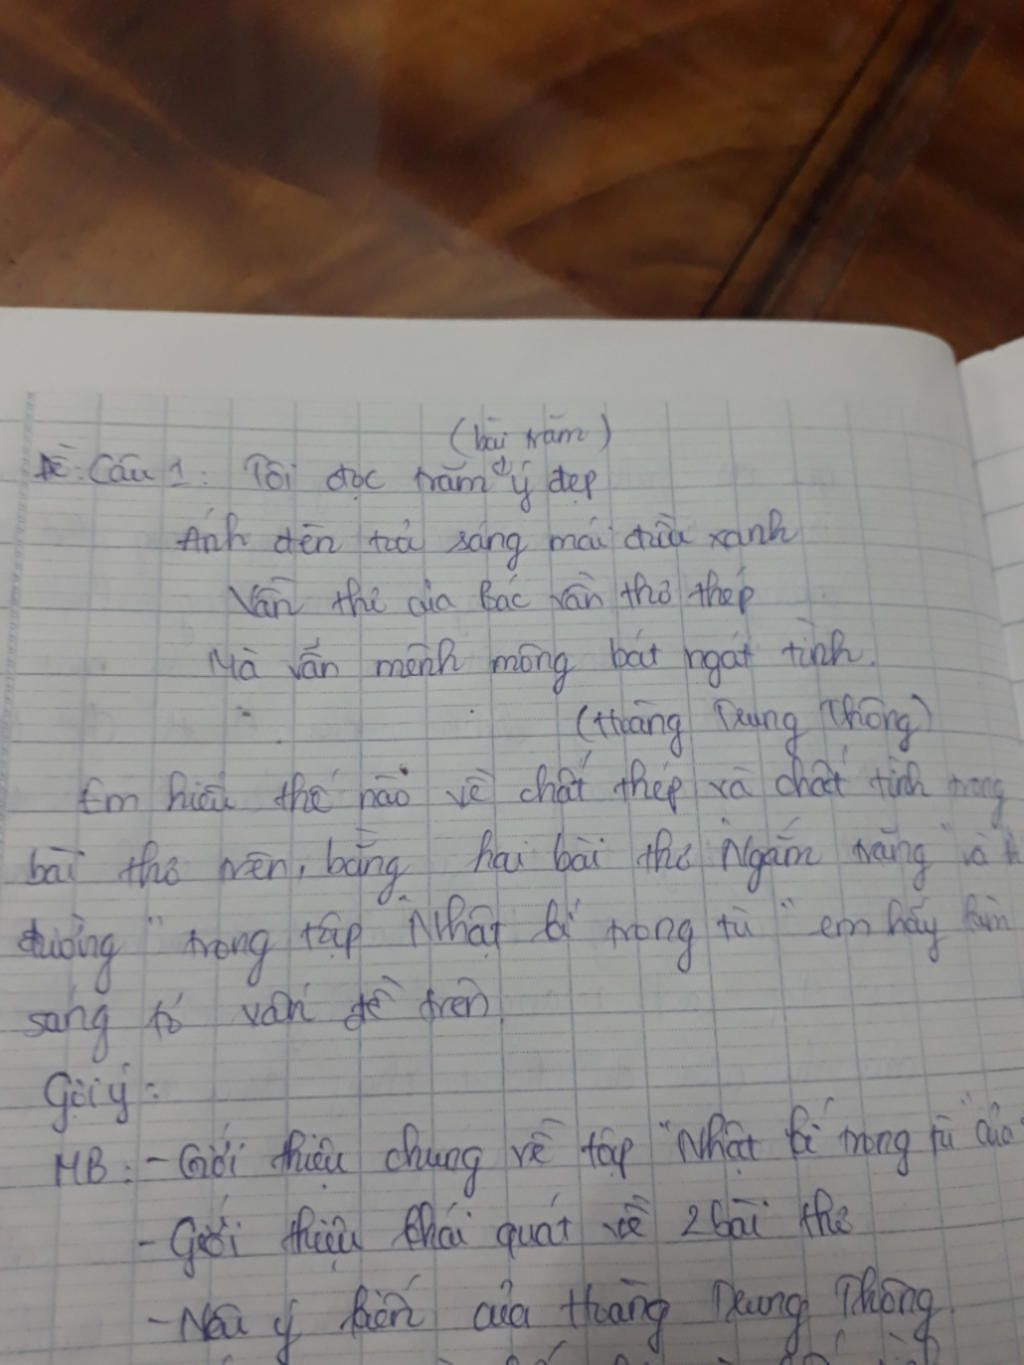 (bài trăm)
Đề: Câu 1: Tôi đọc trăm ý đẹp
Ánh đèn toả sáng mái đầu xanh
Vần thơ của Bác vần thơ thép
Mà vẫn mênh mông bát ngát tình.
(Hoàng Trung Thông)
Em hiểu thế nào về chất thép và chất tình trong
bài thơ trên, bằng hai bài thơ "Ngắm trăng" và
đường" trong tập "Nhật kí trong tù" em hãy làm
sáng tỏ vấn đề trên.
Gợi ý:
MB: - Giới thiệu chung về tập "Nhật kí trong tù" của
- Giới thiệu khái quát về 2 bài thơ
- Nêu ý kiến của Hoàng Trung Thông.